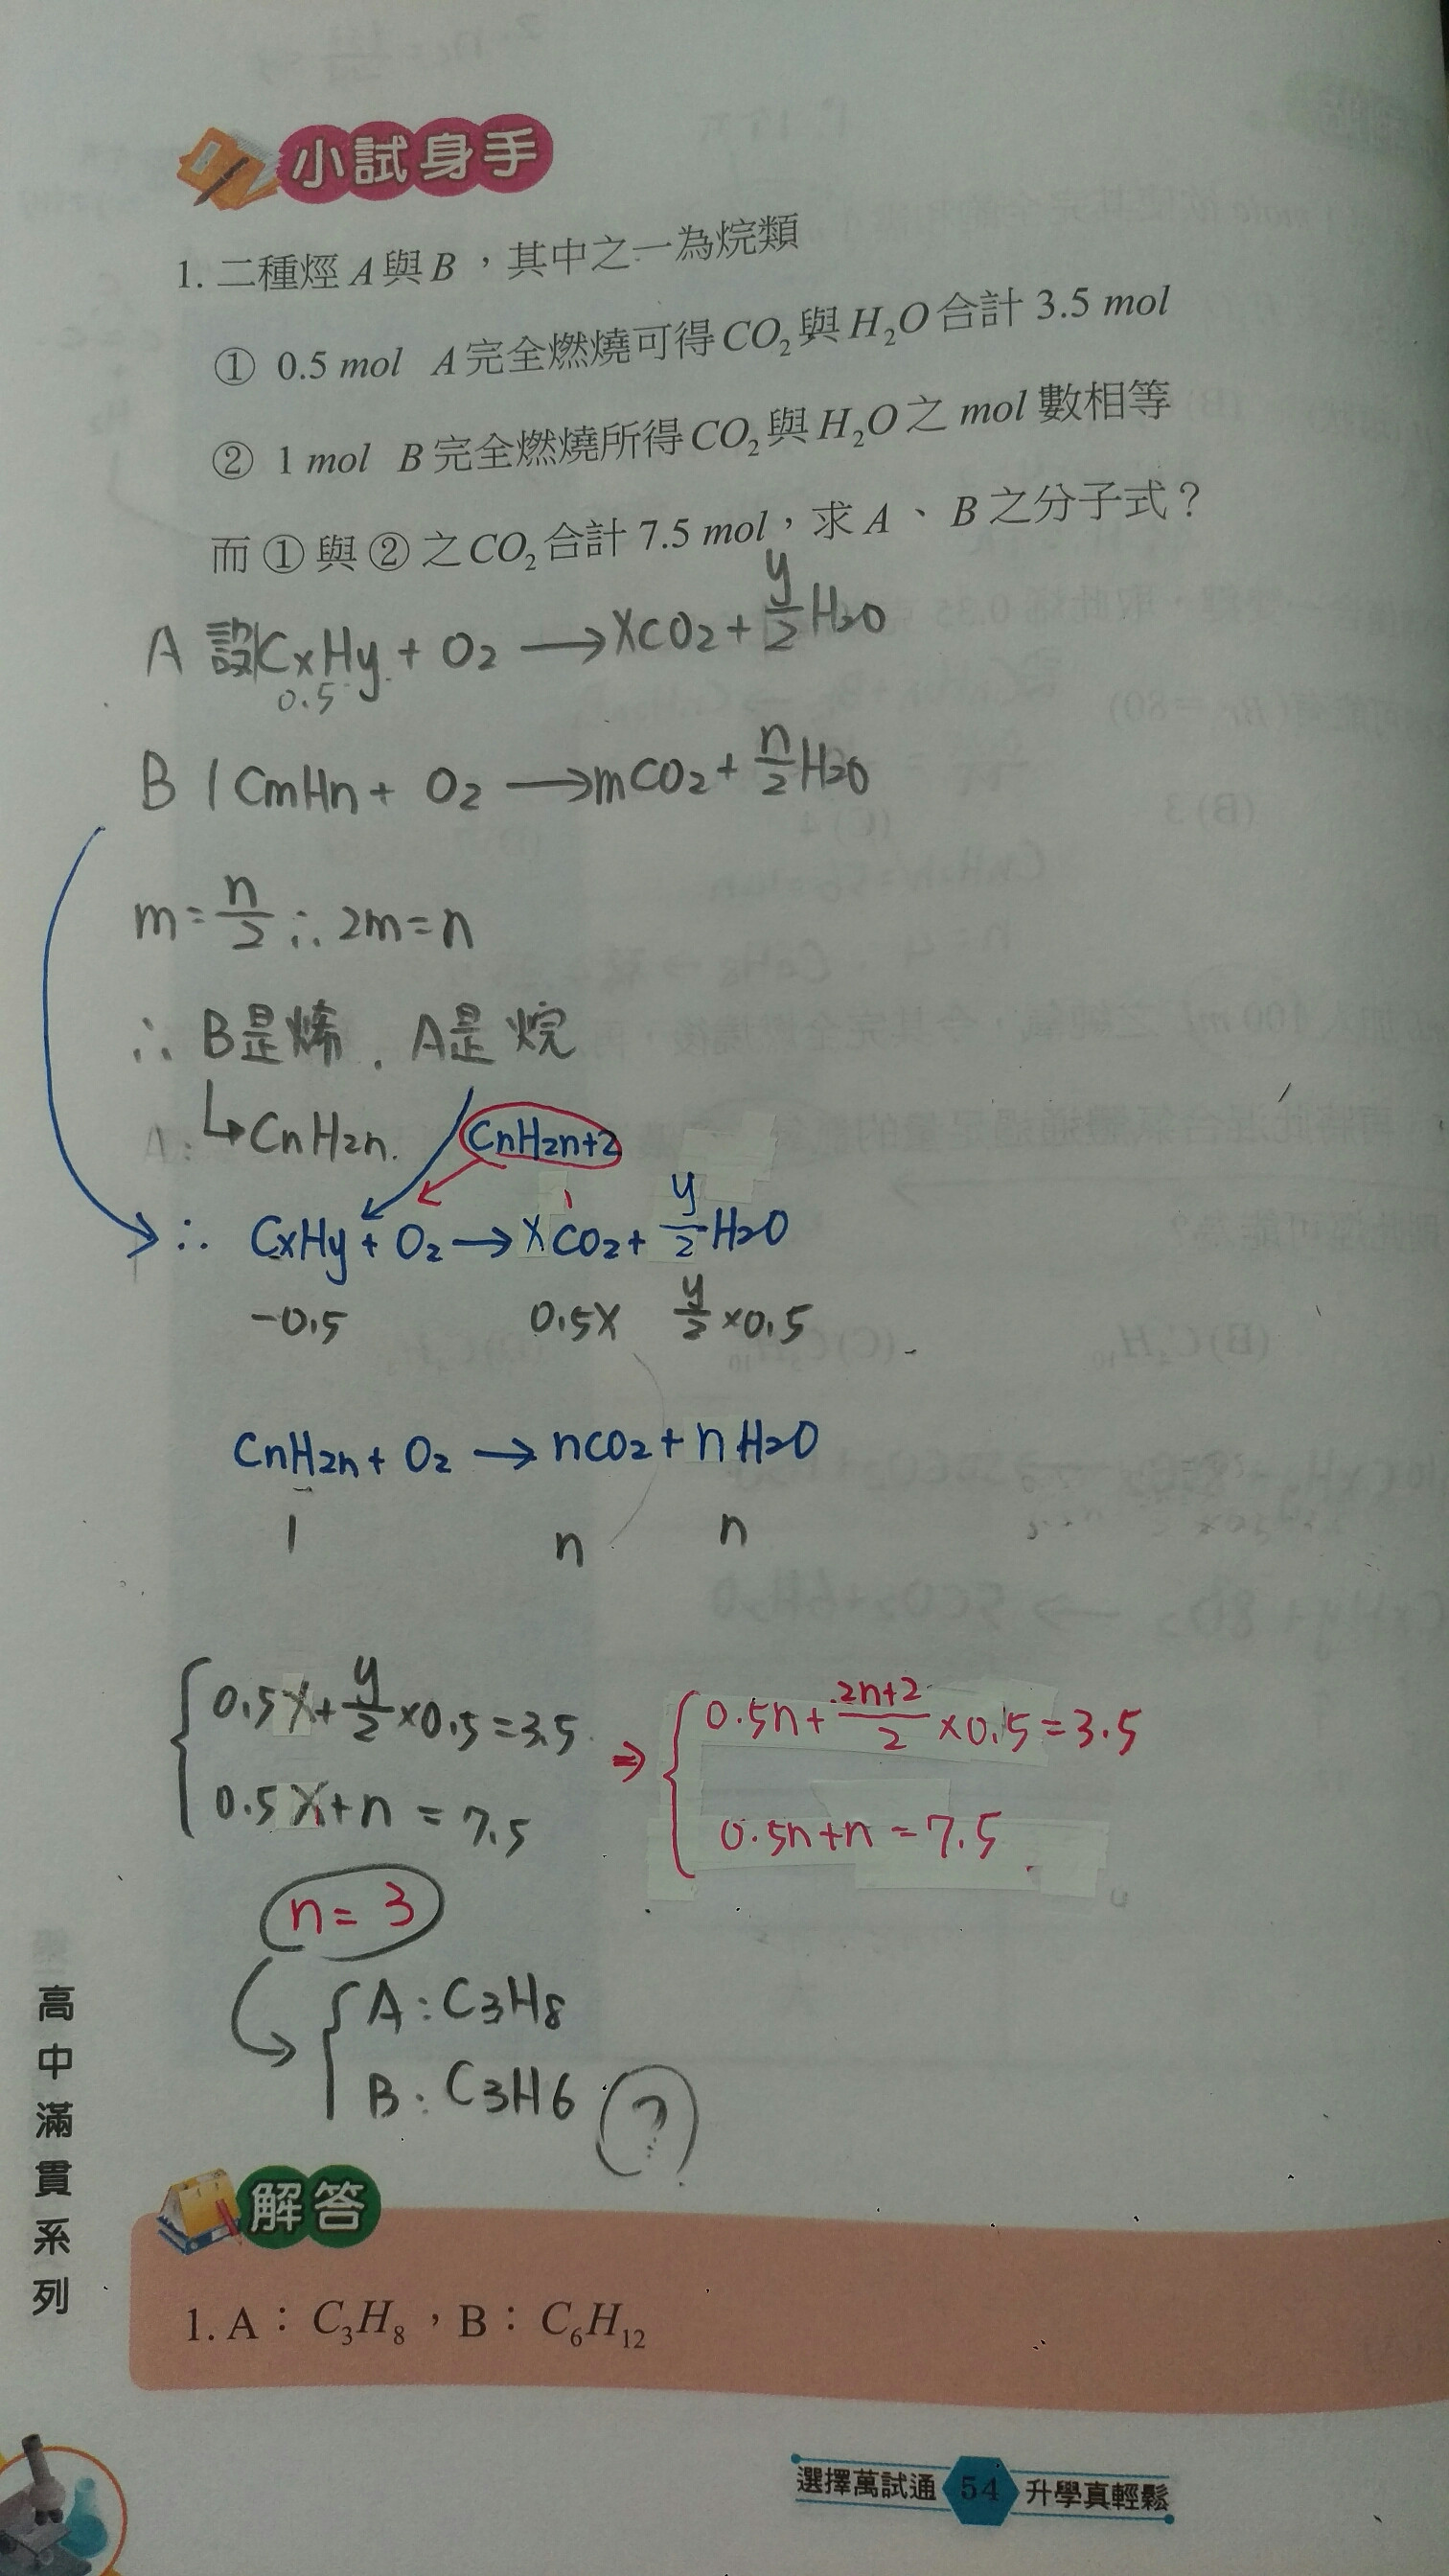 小試身手
1. 二種烴 A與B，其中之一為烷類
① 0.5 mol A完全燃燒可得CO₂與H₂O合計 3.5 mol
② 1 mol B完全燃燒所得CO₂與H₂O之 mol 數相等
而①與②之CO₂合計 7.5 mol，求 A、B之分子式？
A 設CxHy + O₂ → xCO₂ + y/2 H₂O
0.5
B 1 CmHn + O₂ → mCO₂ + n/2 H₂O
m = n/2 ∴ 2m = n
∴ B是烯．A是烷
↳ CnH2n.
CnH2n+2
∴ CxHy + O₂ → xCO₂ + y/2 H₂O
-0.5 0.5x y/2 ×0.5
CnH2n + O₂ → nCO₂ + nH₂O
1 n n
0.5x + y/2 ×0.5 = 3.5 ⇒ 0.5n + 2n+2/2 ×0.5 = 3.5
0.5x + n = 7.5 0.5n + n = 7.5
n = 3
A : C3H8
B : C3H6 ?
解答
1. A： C₃H₈ ，B： C₆H₁₂
高中滿貫系列
選擇萬試通 54 升學真輕鬆